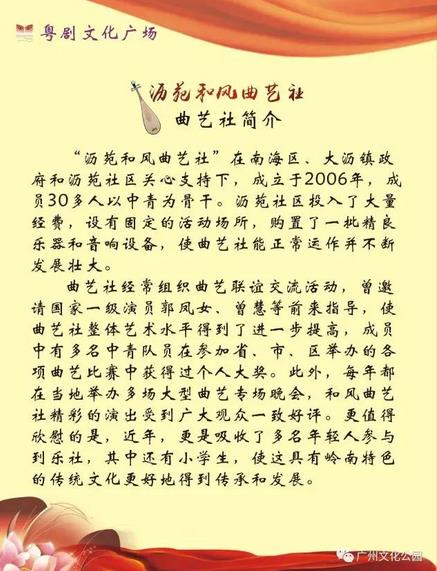 粤剧文化广场
沥苑和风曲艺社
曲艺社简介
“沥苑和风曲艺社”在南海区、大沥镇政
府和沥苑社区关心支持下，成立于2006年，成
员30多人以中青为骨干。沥苑社区投入了大量
经费，设有固定的活动场所，购置了一批精良
乐器和音响设备，使曲艺社能正常运作并不断
发展壮大。
曲艺社经常组织曲艺联谊交流活动，曾邀
请国家一级演员郭凤女、曾慧等前来指导，使
曲艺社整体艺术水平得到了进一步提高，成员
中有多名中青队员在参加省、市、区举办的各
项曲艺比赛中获得过个人大奖。此外，每年都
在当地举办多场大型曲艺专场晚会，和风曲艺
社精彩的演出受到广大观众一致好评。更值得
欣慰的是，近年，更是吸收了多名年轻人参与
到乐社，其中还有小学生，使这具有岭南特色
的传统文化更好地得到传承和发展。
广州文化公园